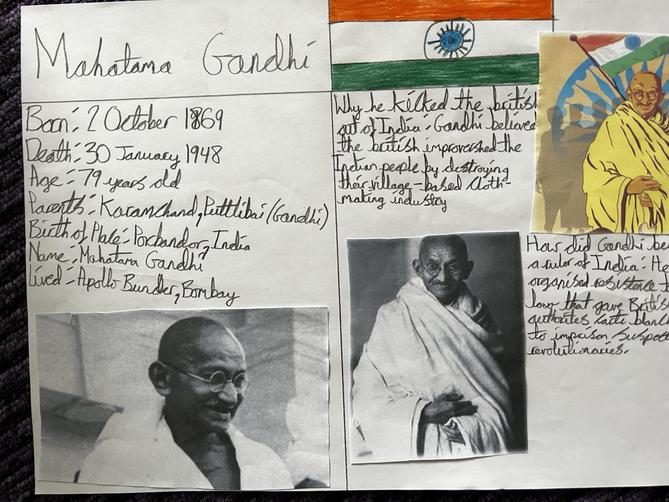 Mahatama Gandhi
Born: 2 October 1869
Death: 30 January 1948
Age: 79 years old
Parents: Karamchand, Puttlibai (Gandhi)
Birth of Plate: Porbandor, India
Name: Mahatama Gandhi
Lived - Apollo Bunder, Bombay
Why he kicked the british
out of India: Gandhi believed
the british improverished the
Indian people by destroying
their village-based cloth-
making industry
How did Gandhi be
a ruler of India: He
organised resistance t
law that gave Briti
authorites carte blanc
to imprison suspect
revolutionaries.